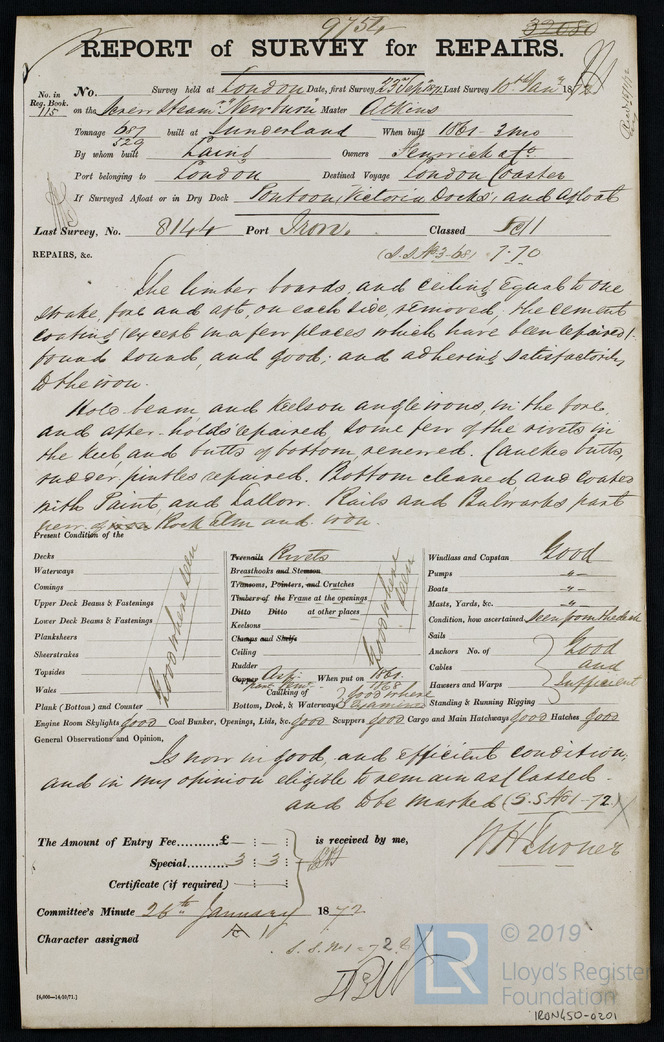 9754
32080
REPORT of SURVEY for REPAIRS.
No. in Reg. Book. 115
No. Survey held at London Date, first Survey 23rd Sept 1871 Last Survey 10th Jany 1872
on the Screw Steamr "Newburn" Master Atkins
Tonnage 687 529 built at Sunderland When built 1861 - 3mo
By whom built Laing Owners Fenwick & Co
Port belonging to London Destined Voyage London Coaster
If Surveyed Afloat or in Dry Dock Pontoon, Victoria Docks, and Afloat
Last Survey, No. 8144 Port Iron. Classed
REPAIRS, &c. (S.S. No 3-68) 7-70
The limber boards, and ceiling equal to one
strake, fore and aft, on each side, removed, the cement
coating (except in a few places which have been repaired)
found sound, and good; and adhering satisfactorily
to the iron.
Hold-beam and Keelson angle irons, in the fore,
and after-holds repaired, some few of the rivets in
the keel, and butts of bottom, renewed. Caulked butts,
rudder pintles repaired. Bottom cleaned and coated
with Paint, and Tallow. Rails and Bulwarks part
new of Rock Elm and iron.
Present Condition of the
Decks
Waterways
Comings
Upper Deck Beams & Fastenings
Lower Deck Beams & Fastenings
Planksheers
Sheerstrakes
Topsides
Wales
Plank (Bottom) and Counter
Good where seen
Treenails Rivets
Breasthooks and Stemson
Transoms, Pointers, and Crutches
Timbers of the Frame at the openings
Ditto Ditto at other places
Keelsons
Clamps and Shelfs
Ceiling
Rudder
Copper When put on 1861
part new 1868
Caulking of Bottom, Deck, & Waterways good where examined
Good where seen
Windlass and Capstan Good
Pumps -"-
Boats -"-
Masts, Yards, &c. -"-
Condition, how ascertained Seen from the deck
Sails
Anchors No. of
Cables
Hawsers and Warps
Standing & Running Rigging
Good and Sufficient
Engine Room Skylights good Coal Bunker, Openings, Lids, &c. good Scuppers good Cargo and Main Hatchways good Hatches good
General Observations and Opinion,
Is now in good, and efficient condition,
and in my opinion eligible to remain as Classed.
and to be marked (S.S. No 1-72)
The Amount of Entry Fee..........£ — : — :
Special.......... 3 : 3 :
Certificate (if required) — : — :
is received by me,
Committee's Minute 26th January 1872
Character assigned A 1
S.S. No 1-72
[6,000—14/10/71.]
LR
© 2019
Lloyd's Register
Foundation
IRON450-0201